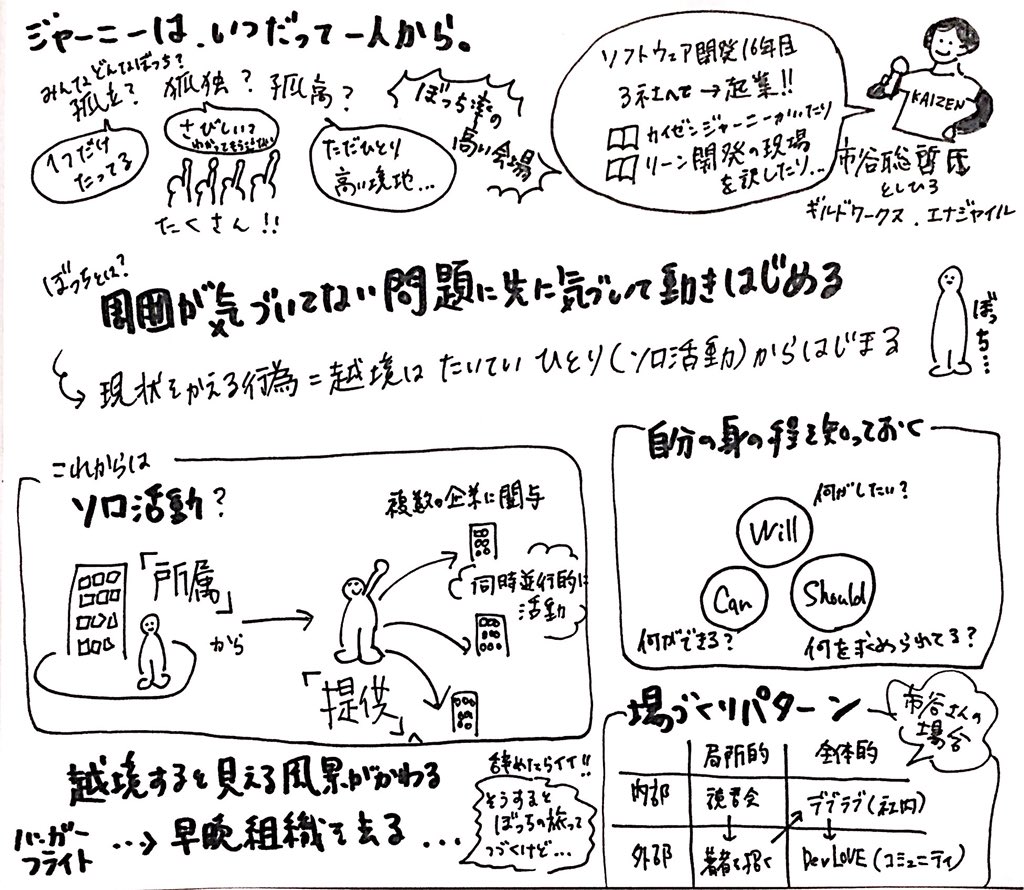 ジャーニーは、いつだって一人から。
みんなどんなぼっち?
孤立? 狐独? 孤高?
1つだけ
たってる
さびしいって
わかってもらえない
たくさん!!
ただひとり
高い境地…
ぼっち率の
高い会場
ソフトウェア開発16年目
3社へて→起業!!
カイゼンジャーニーかいたり
リーン開発の現場
を訳したり…
KAIZEN
市谷聡啓氏
としひろ
ギルドワークス、エナジャイル
ぼっちとは?
周囲が気づいてない問題に先に気づいて動きはじめる
→現状をかえる行為=越境はたいていひとり(ソロ活動)からはじまる
ぼっち…
これからは
ソロ活動?
「所属」
から
「提供」へ
複数の企業に関与
同時並行的に
活動
自分の身の程を知っておく
何がしたい?
Will
Can
Should
何ができる?
何を求められてる?
越境すると見える風景がかわる
バーガー
フライト
…→早晩組織を去る…
辞めたらイイ!!
そうすると
ぼっちの旅って
つづくけど…
場づくりパターン
市谷さんの
場合
局所的 全体的
内部 読書会 デブラブ(社内)
外部 著者を招く DevLOVE(コミュニティ)